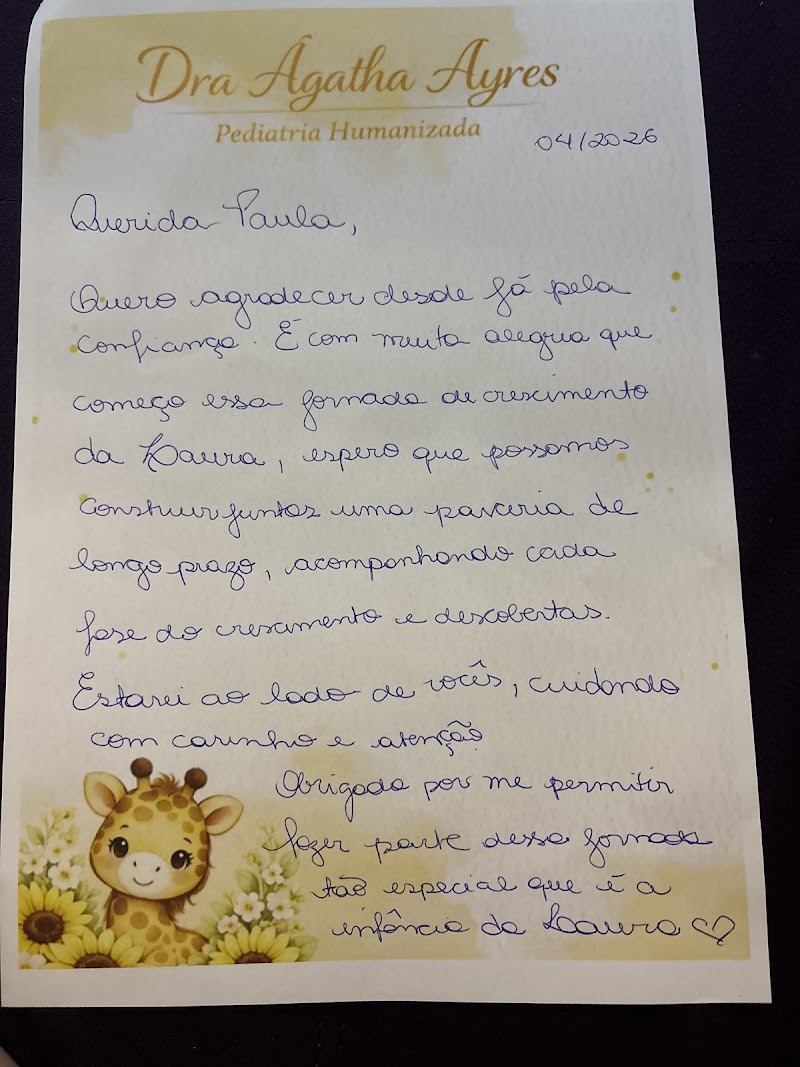 Dra Ágatha Ayres
Pediatria Humanizada
04/2026
Querida Paula,
Quero agradecer desde já pela
confiança. É com muita alegria que
começo essa jornada de crescimento
da Laura, espero que possamos
construir juntas uma parceria de
longo prazo, acompanhando cada
fase do crescimento e descobertas.
Estarei ao lado de vocês, cuidando
com carinho e atenção
Obrigada por me permitir
fazer parte dessa jornada
tão especial que é a
infância da Laura ♡